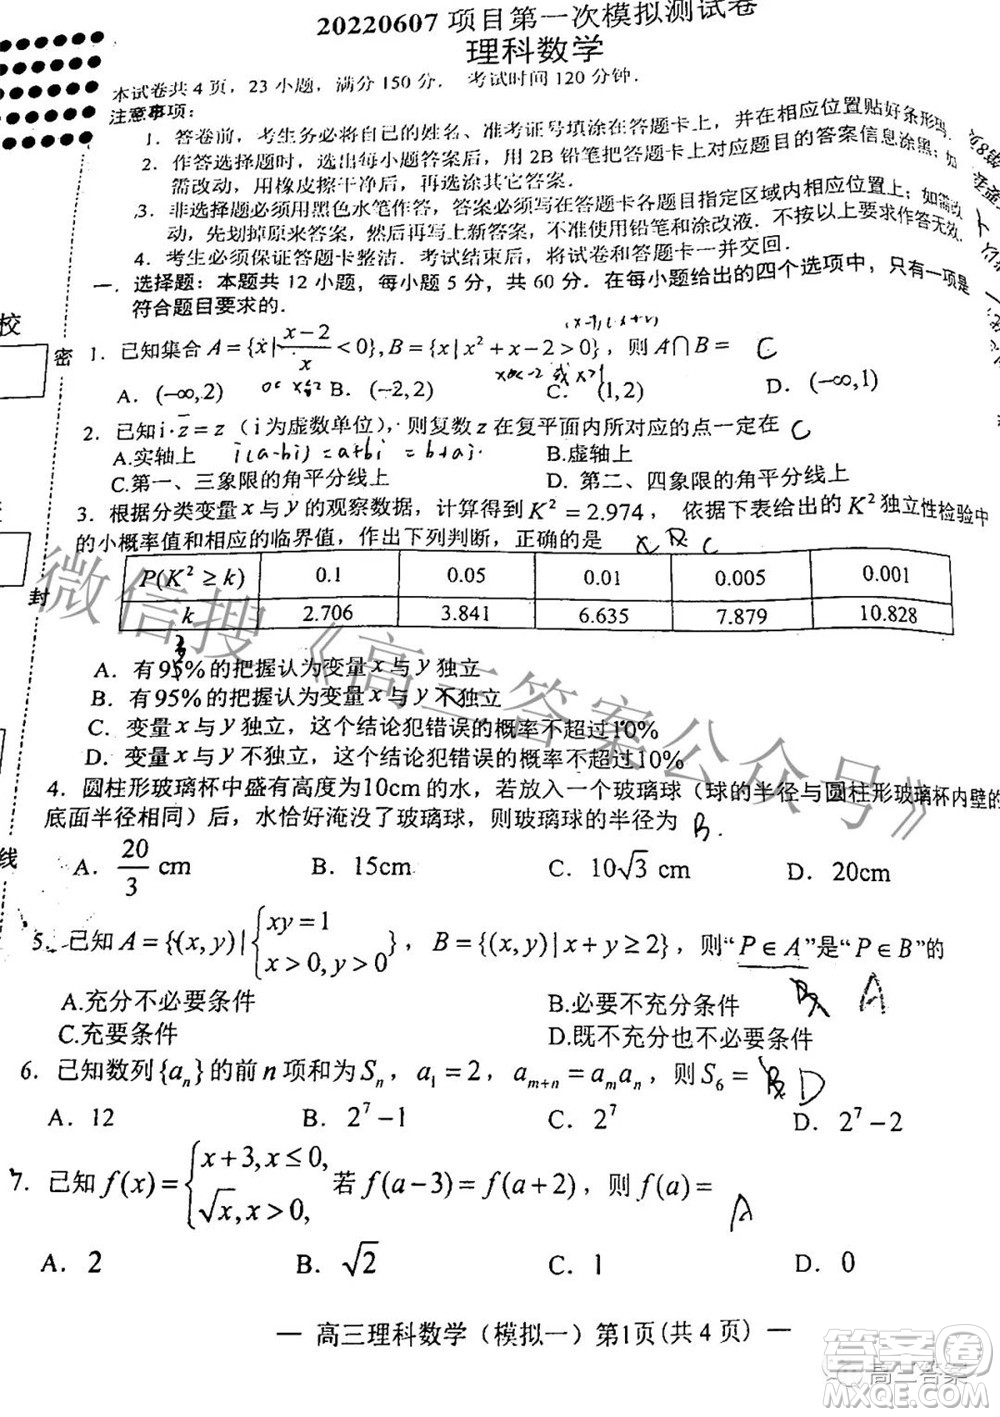 20220607项目第一次模拟测试卷
理科数学
本试卷共4页，23小题，满分150分． 考试时间120分钟．
注意事项：
1．答卷前，考生务必将自己的姓名、准考证号填涂在答题卡上，并在相应位置贴好条形码．
2．作答选择题时，选出每小题答案后，用2B铅笔把答题卡上对应题目的答案信息涂黑；如
需改动，用橡皮擦干净后，再选涂其它答案．
3．非选择题必须用黑色水笔作答，答案必须写在答题卡各题目指定区域内相应位置上；如需改
动，先划掉原来答案，然后再写上新答案，不准使用铅笔和涂改液．不按以上要求作答无效．
4．考生必须保证答题卡整洁．考试结束后，将试卷和答题卡一并交回．
一．选择题：本题共12小题，每小题5分，共60分．在每小题给出的四个选项中，只有一项是
符合题目要求的．
1．已知集合 A={x|(x-2)/x<0}, B={x|x²+x-2>0}，则 A∩B= C
A．(-∞,2) B．(-2,2) C．(1,2) D．(-∞,1)
2．已知 i·z̄=z（i为虚数单位），则复数 z 在复平面内所对应的点一定在 C
A.实轴上 i(a-bi)=a+bi =b+ai B.虚轴上
C.第一、三象限的角平分线上 D．第二、四象限的角平分线上
3．根据分类变量 x 与 y 的观察数据，计算得到 K²=2.974，依据下表给出的 K² 独立性检验中
的小概率值和相应的临界值，作出下列判断，正确的是 C
P(K²≥k) 0.1 0.05 0.01 0.005 0.001
k 2.706 3.841 6.635 7.879 10.828
A．有95%的把握认为变量 x 与 y 独立
B．有95%的把握认为变量 x 与 y 不独立
C．变量 x 与 y 独立，这个结论犯错误的概率不超过10%
D．变量 x 与 y 不独立，这个结论犯错误的概率不超过10%
4．圆柱形玻璃杯中盛有高度为10cm的水，若放入一个玻璃球（球的半径与圆柱形玻璃杯内壁的
底面半径相同）后，水恰好淹没了玻璃球，则玻璃球的半径为 B．
A．20/3 cm B．15cm C．10√3 cm D．20cm
5．已知 A={(x,y)|{xy=1 x>0,y>0}，B={(x,y)|x+y≥2}，则“P∈A”是“P∈B”的
A.充分不必要条件 B.必要不充分条件 A
C.充要条件 D.既不充分也不必要条件
6．已知数列{aₙ}的前 n 项和为 Sₙ，a₁=2，aₘ₊ₙ=aₘaₙ，则 S₆= D
A．12 B．2⁷-1 C．2⁷ D．2⁷-2
7．已知 f(x)={x+3,x≤0, √x,x>0, 若 f(a-3)=f(a+2)，则 f(a)= A
A．2 B．√2 C．1 D．0
— 高三理科数学（模拟一）第1页(共4页) —
校
密
封
线
微信搜《高三答案公众号》
高三答案
答案圈
MXQE.COM